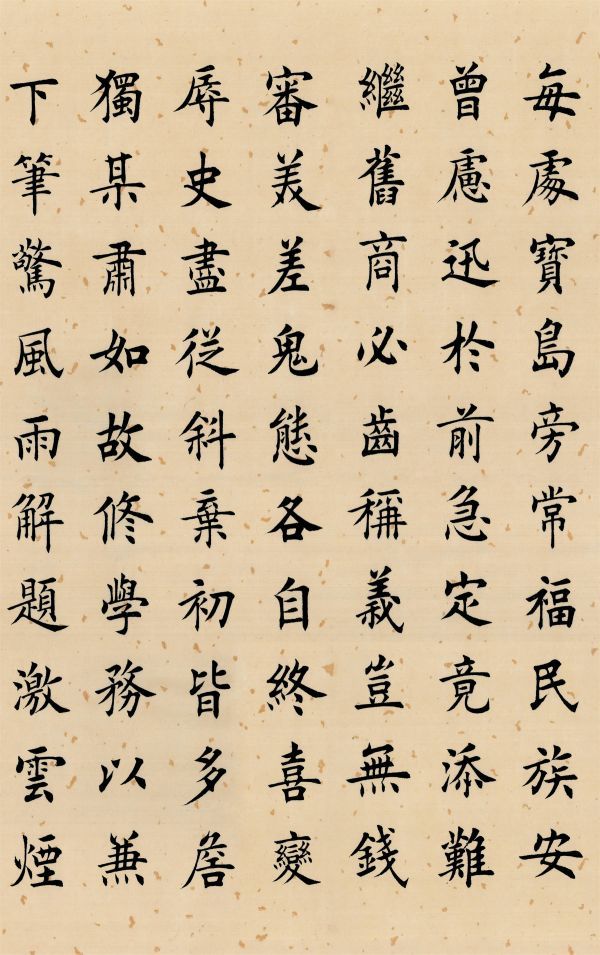 每處寶島旁常福民族安
曾慮迅於前急定竟添難
繼舊商必齒稱義豈無錢
審美差鬼態各自終喜變
辱史盡從斜棄初皆多詹
獨某肅如故修學務以兼
下筆驚風雨解題激雲煙